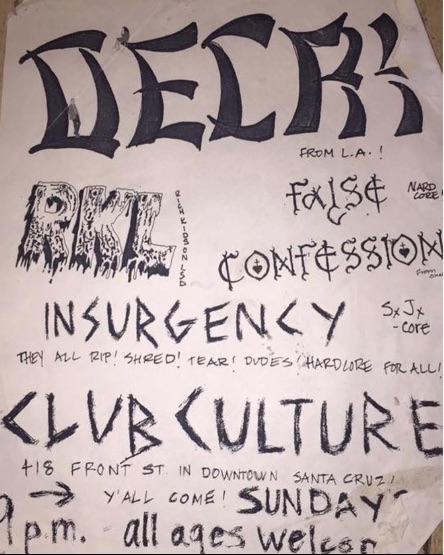 DECRY
FROM L.A.!
RKL
RICH KIDS ON LSD
FALSE
NARD CORE!
CONFESSION
INSURGENCY
SxJx
-core
THEY ALL RIP! SHRED! TEAR! DUDES! HARDCORE FOR ALL!
CLUB CULTURE
418 FRONT ST. IN DOWNTOWN SANTA CRUZ!
→ Y'ALL COME! SUNDAY
9 p.m. all ages